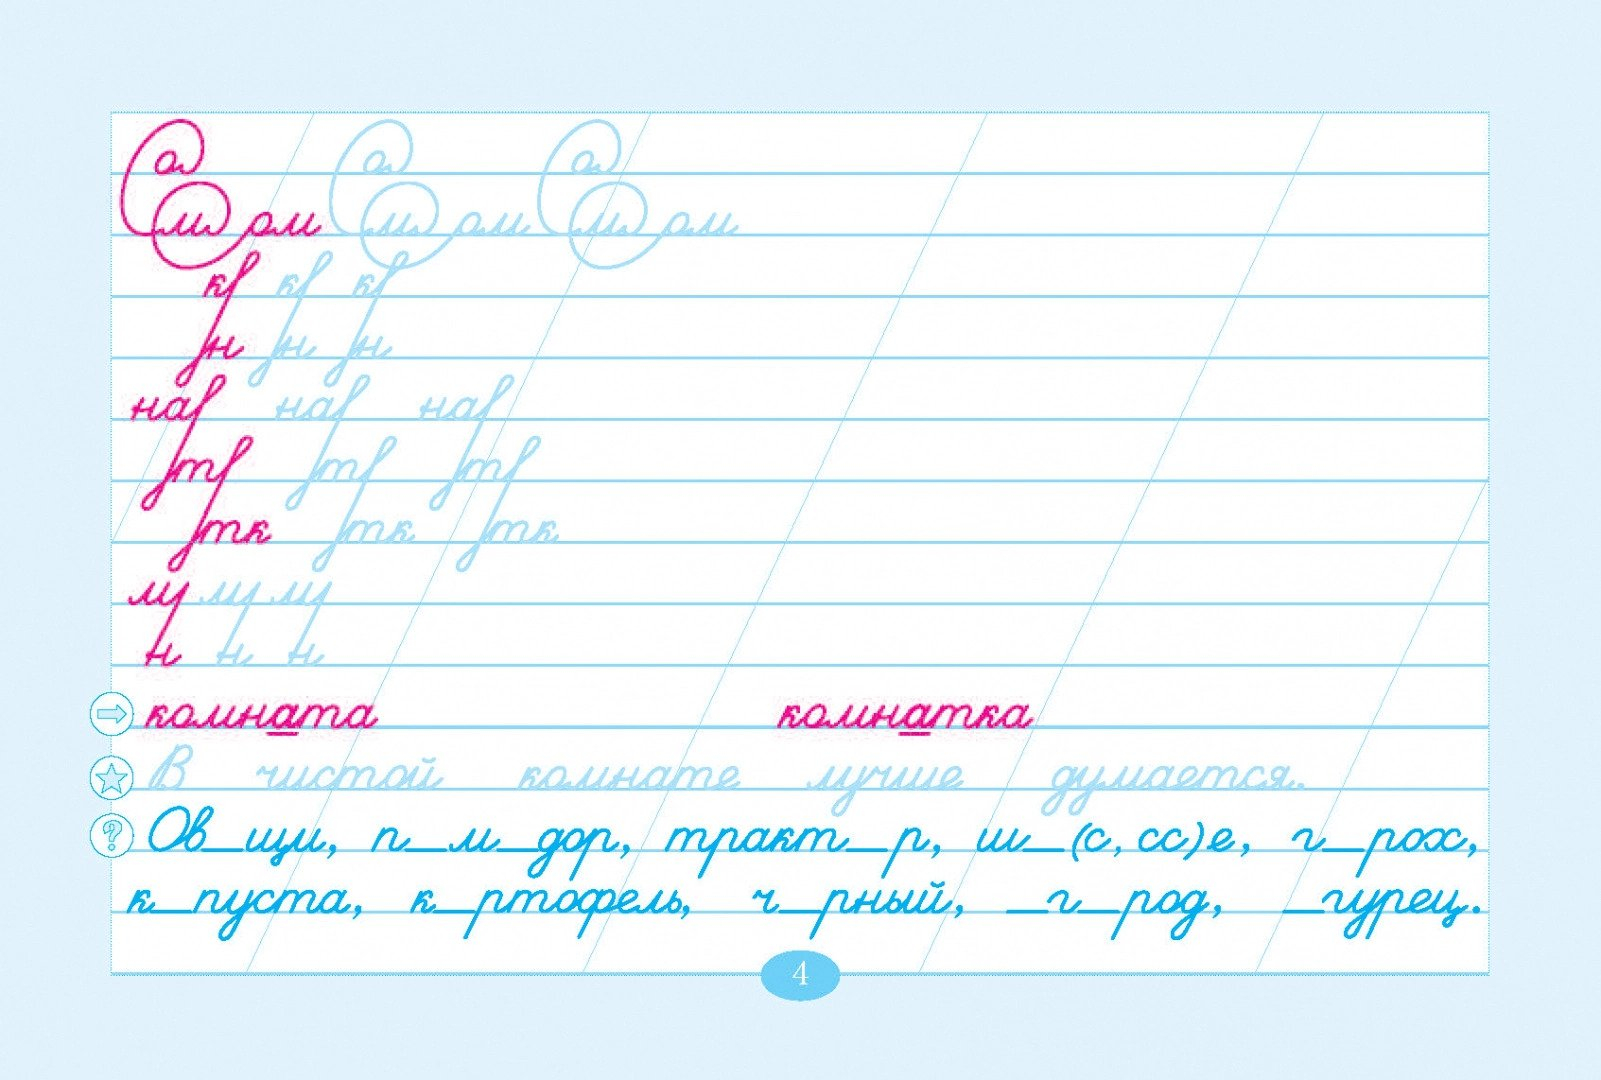 Са Са Са
м ом м ом м ом
кр кр кр
н н н
нар нар нар
тр тр тр
тк тк тк
лу лу лу
н н н
комната комнатка
В чистой комнате лучше думается.
Ов_щи, п_м_дор, тракт_р, ш_(с, сс)е, г_рох,
к_пуста, к_ртофель, ч_рный, _г_род, _гурец.
4